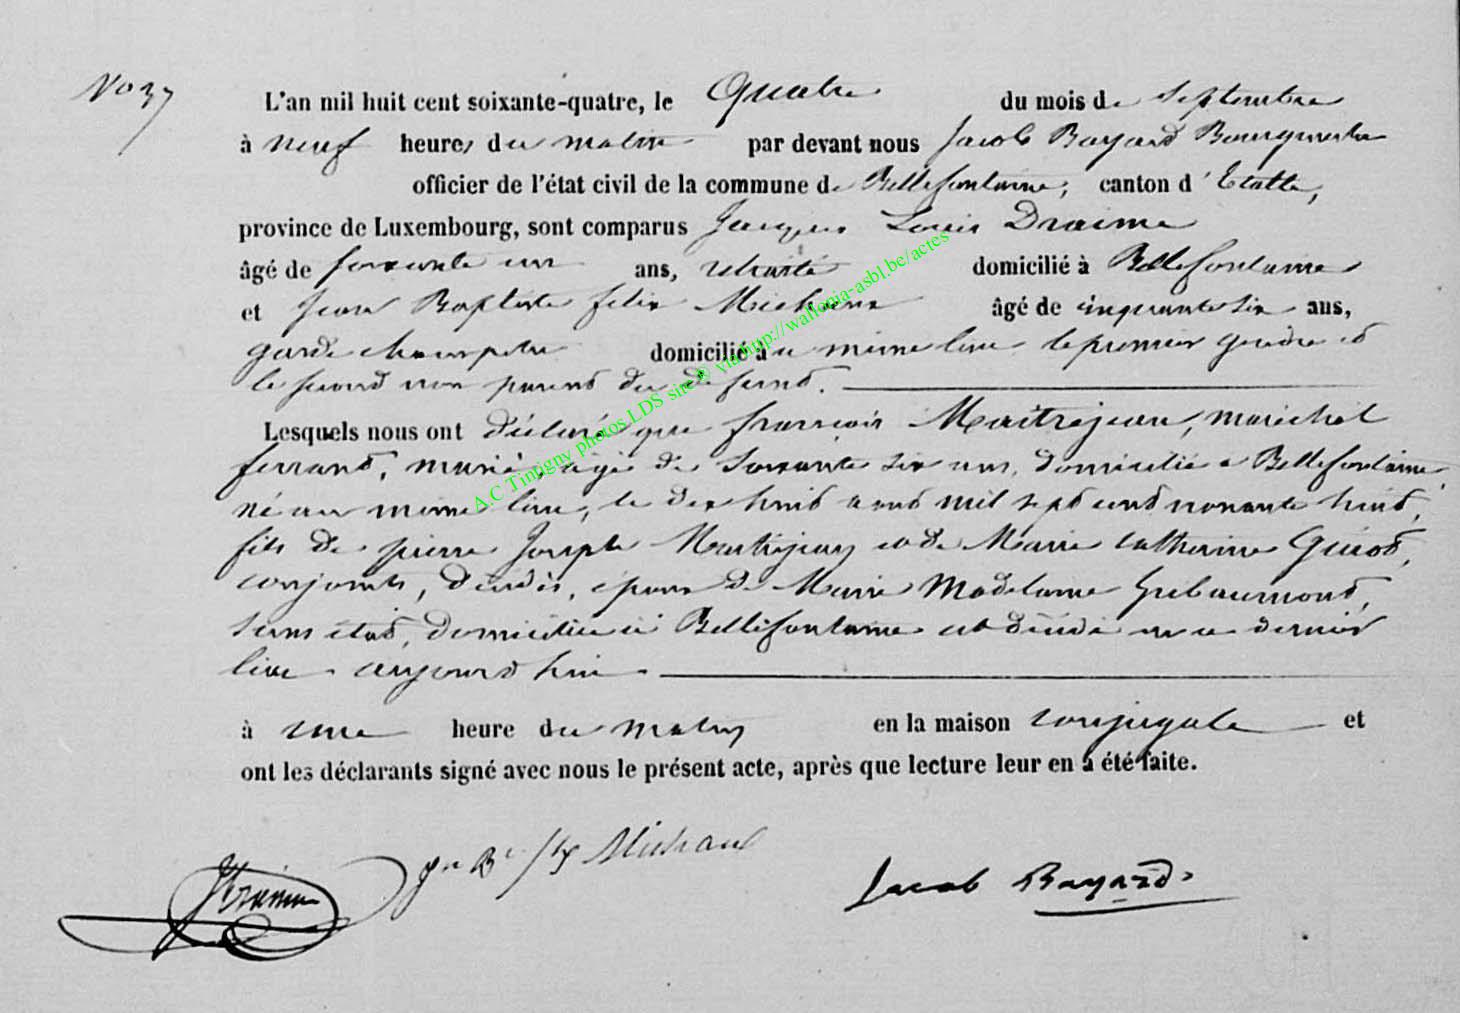 No 37
L'an mil huit cent soixante-quatre, le Quatre du mois de Septembre
à neuf heures du matin par devant nous Jacob Bayard Bourgmestre
officier de l'état civil de la commune de Bellefontaine, canton d'Etalle,
province de Luxembourg, sont comparus Jacques Louis Draime
âgé de soixante un ans, retraité domicilié à Bellefontaine
et Jean Baptiste felix Michaux âgé de cinquante six ans,
garde champetre domicilié au même lieu le premier gendre et
le second non parent du defunt.
Lesquels nous ont déclaré que françois Maitrejean, maréchal
ferrant, marié, agé de soixante six ans, domicilié à Bellefontaine,
né au même lieu, le dix huit aout mil sept cent nonante huit,
fils de pierre Joseph Maitrejean et de Marie catherine Guiot,
conjoints, décédés, époux de Marie Madelaine Gribaumont,
sans état, domiciliée à Bellefontaine est décédé en ce dernier
lieu aujourd'hui
à une heure du matin en la maison conjugale et
ont les déclarants signé avec nous le présent acte, après que lecture leur en a été faite.
A.C Tintigny photos LDS site® via http://wallonia-asbl.be/actes
JLDraime Jn Bte flx Michaux Jacob Bayard